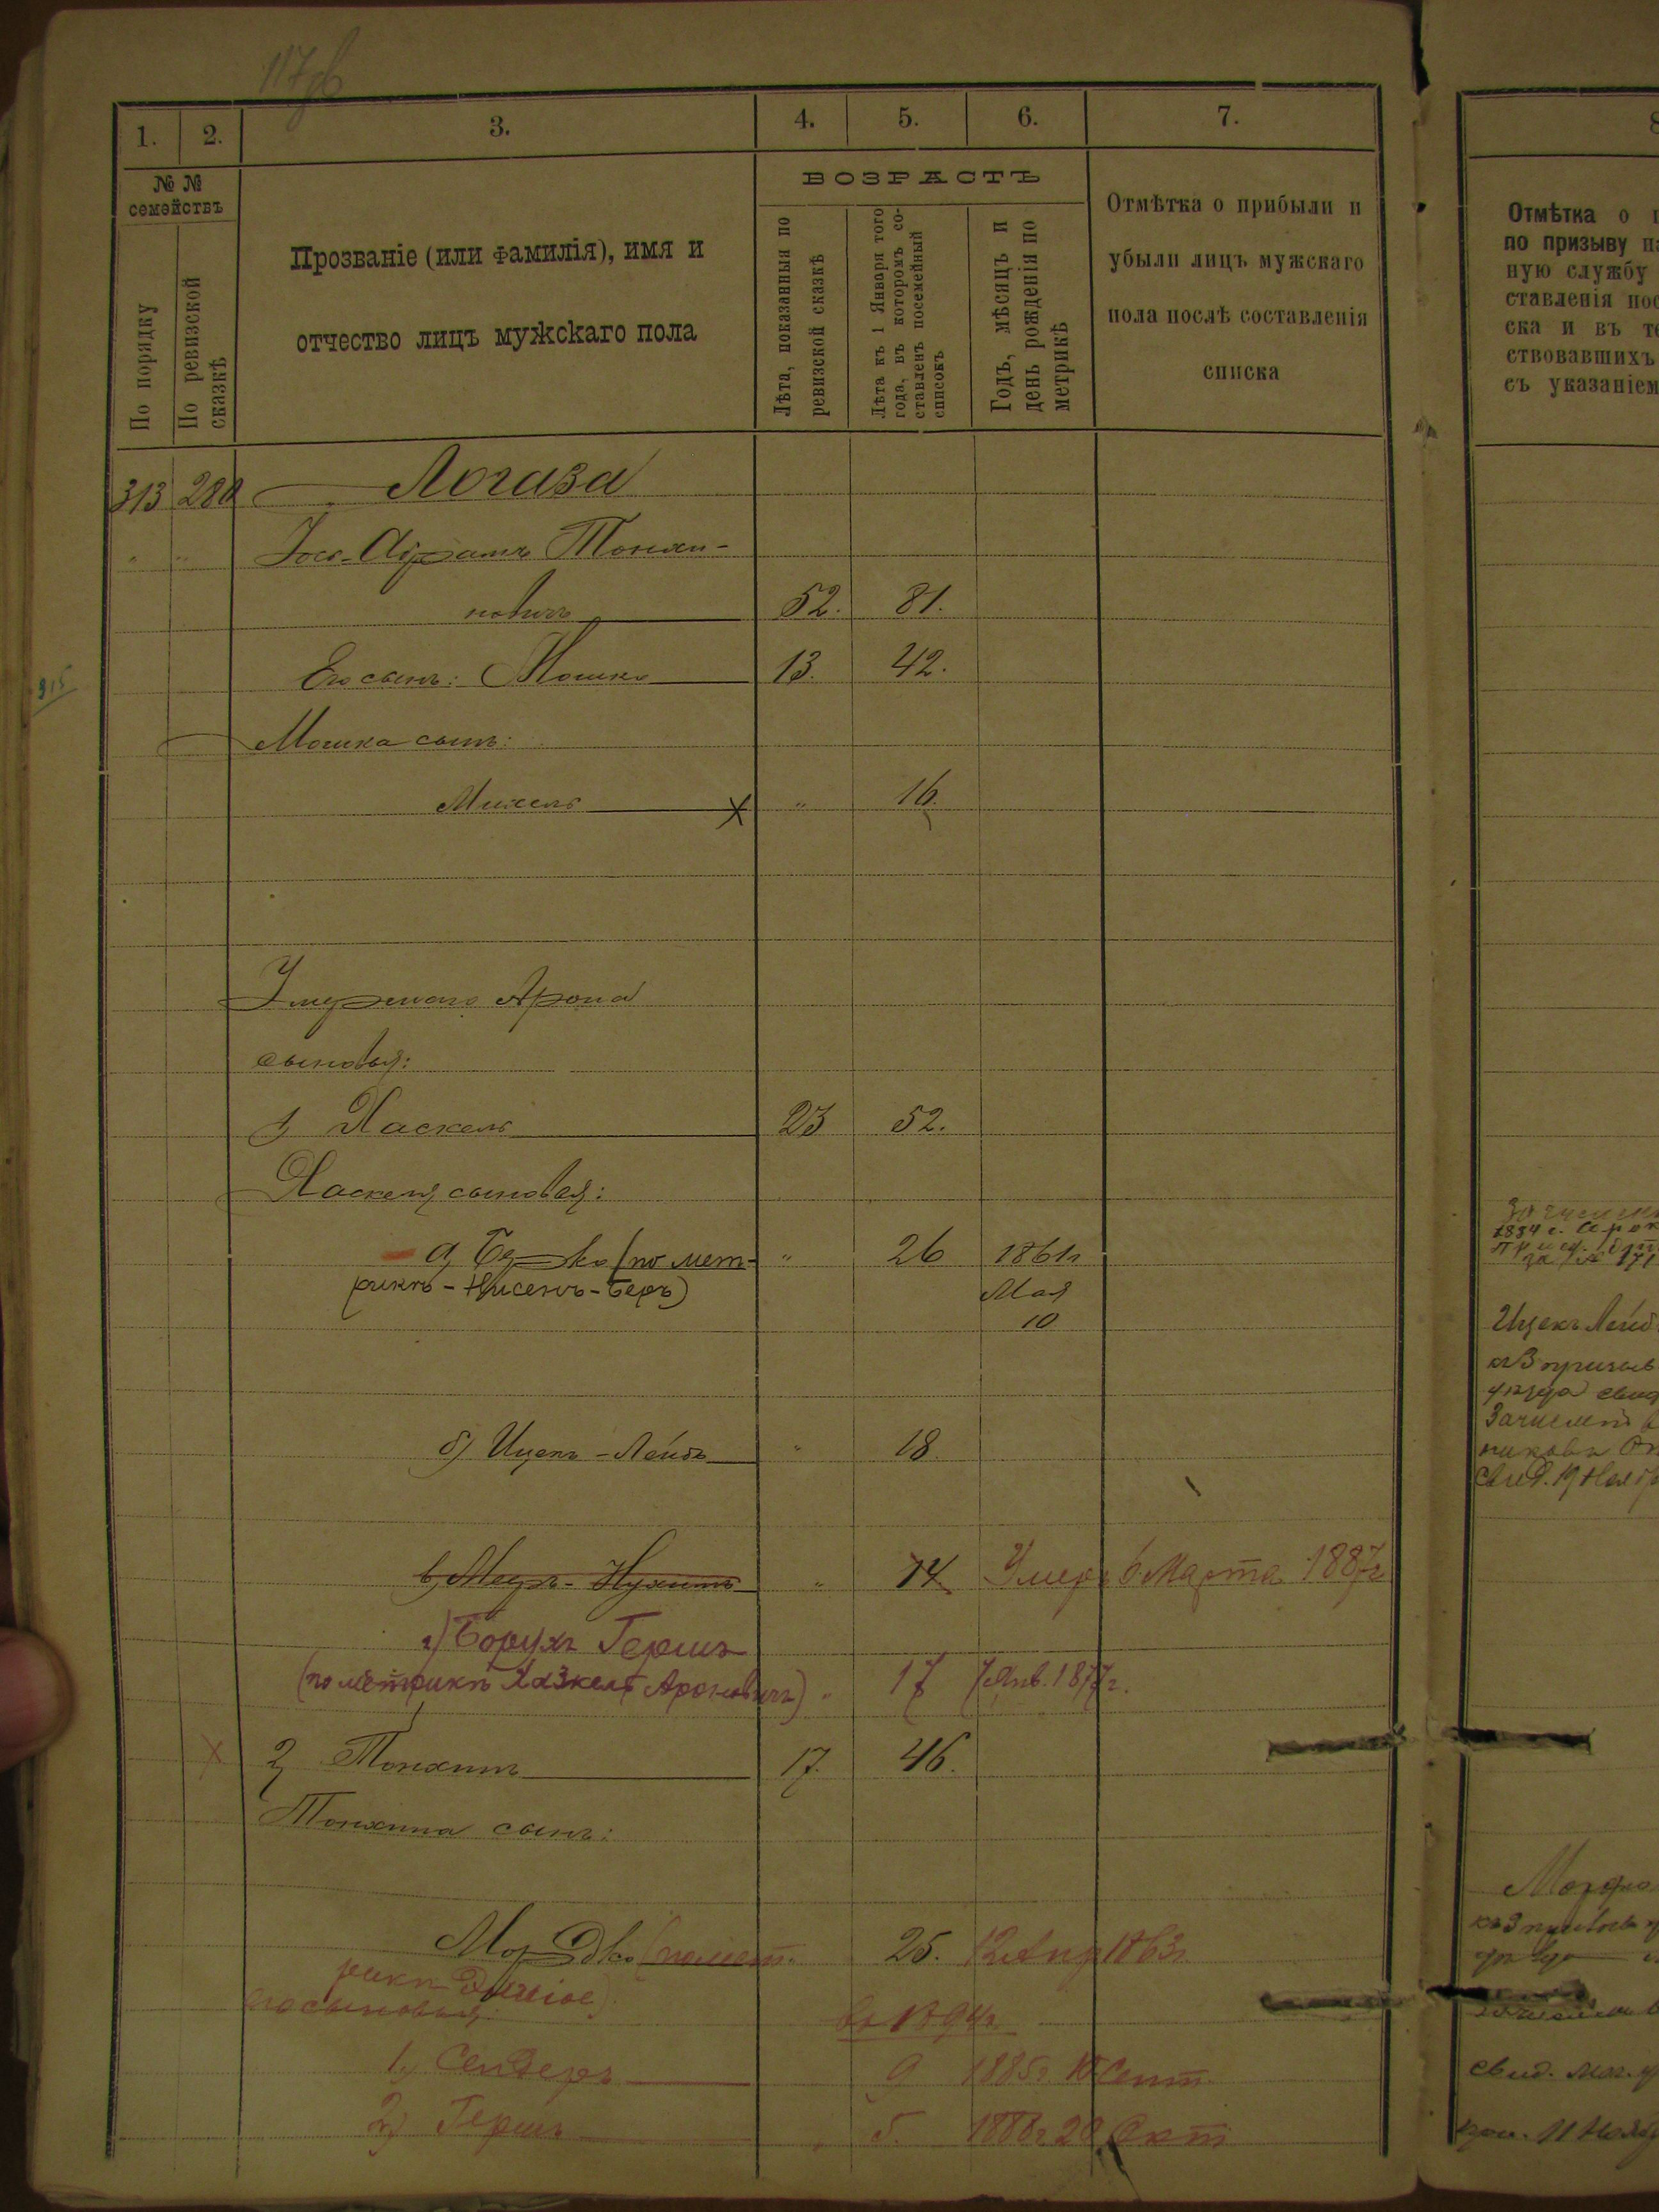 117об
1. 2. 3. 4. 5. 6. 7.
№ №
семействъ
По порядку
По ревизской
сказкѣ
Прозваніе (или фамилія), имя и
отчество лицъ мужскаго пола
ВОЗРАСТЪ
Лѣта, показанныя по
ревизской сказкѣ
Лѣта къ 1 Января того
года, въ которомъ со-
ставленъ посемейный
списокъ
Годъ, мѣсяцъ и
день рожденія по
метрикѣ
Отмѣтка о прибыли и
убыли лицъ мужскаго
пола послѣ составленія
списка
8
Отмѣтка о
по призыву
ную службу
ставленія пос
ска и въ те
ствовавшихъ
съ указаніем
313 280 Логаза
" " Абрамъ Тонхи-
новичъ 52. 81.
Его сынъ: Мошка 13. 42.
315
Мошка сынъ:
Михель " 16.
Умершаго Арона
сыновья:
1) Хаскель 23 52.
Хаскеля сыновья:
а) Берко (по мет- " 26 1861г
рикѣ - Нисенъ-Беръ) Мая
10
б) Ицекъ-Лейбъ " 18
в) Мееръ-Нухимъ " 14 Умеръ 6 Марта 1887г
г) Борухъ Гершъ
(по метрикѣ Хазкель Ароновичъ) " 17 7 Янв. 1877г.
2) Тонхимъ 17. 46.
Тонхима сынъ:
Мордко (по мет- 25. 12 Апр 1863г
рикѣ
его сыновья: въ 1894г
1) Сендеръ 9 1885г 15 Сент
2) Гершъ " 5. 1888г 20 Окт
Ицекъ Лейб
Зачислен
свид. 19 Нояб
Мордко
свид.
11 Нояб